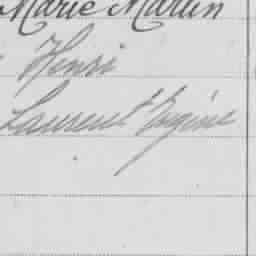 Marie Martin
Henri
Laurent Eugène